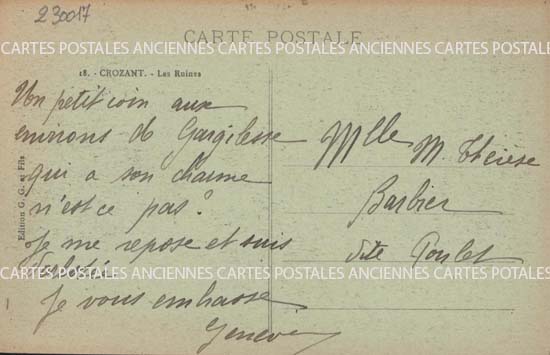 230017
CARTE POSTALE
CARTES POSTALES ANCIENNES CARTES POSTALES ANCIENNES CARTES POSTALES
18. - CROZANT. - Les Ruines
Un petit coin aux
environs de Gargilesse
qui a son charme
n'est ce pas?
Je me repose et suis
Je vous embrasse
Genev
Mlle M. Thérèse
Barbier
dite Poulet
Edition G. G. et Fils
CARTES POSTALES ANCIENNES CARTES POSTALES ANCIENNES CARTES POSTALES